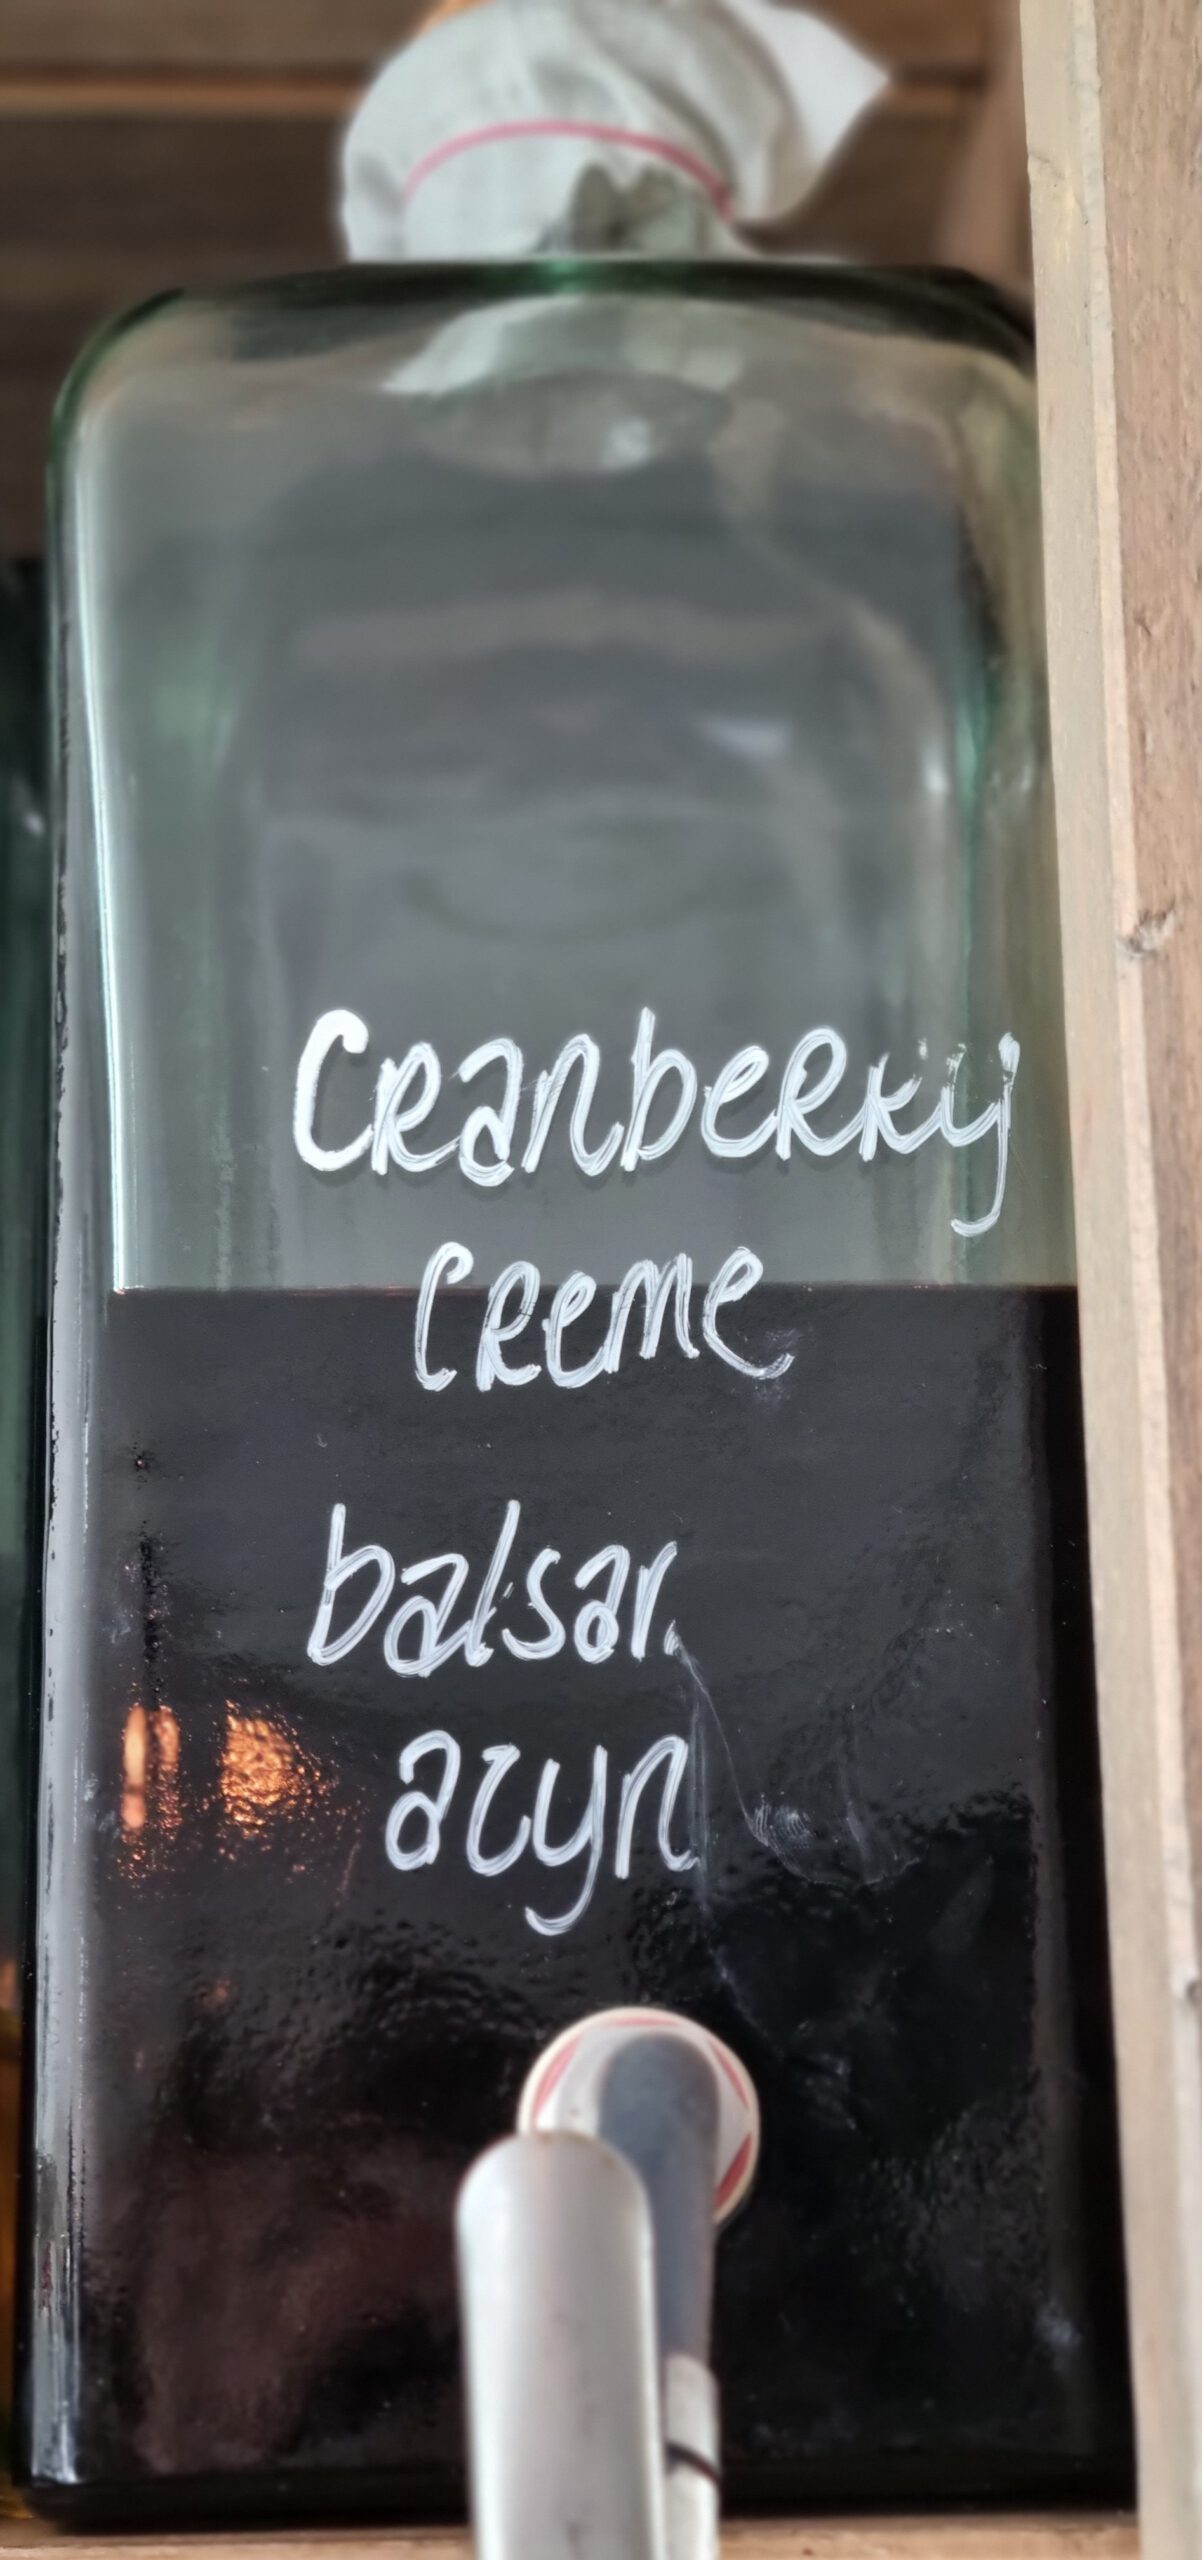 Cranberry
Creme
balsam
azyn